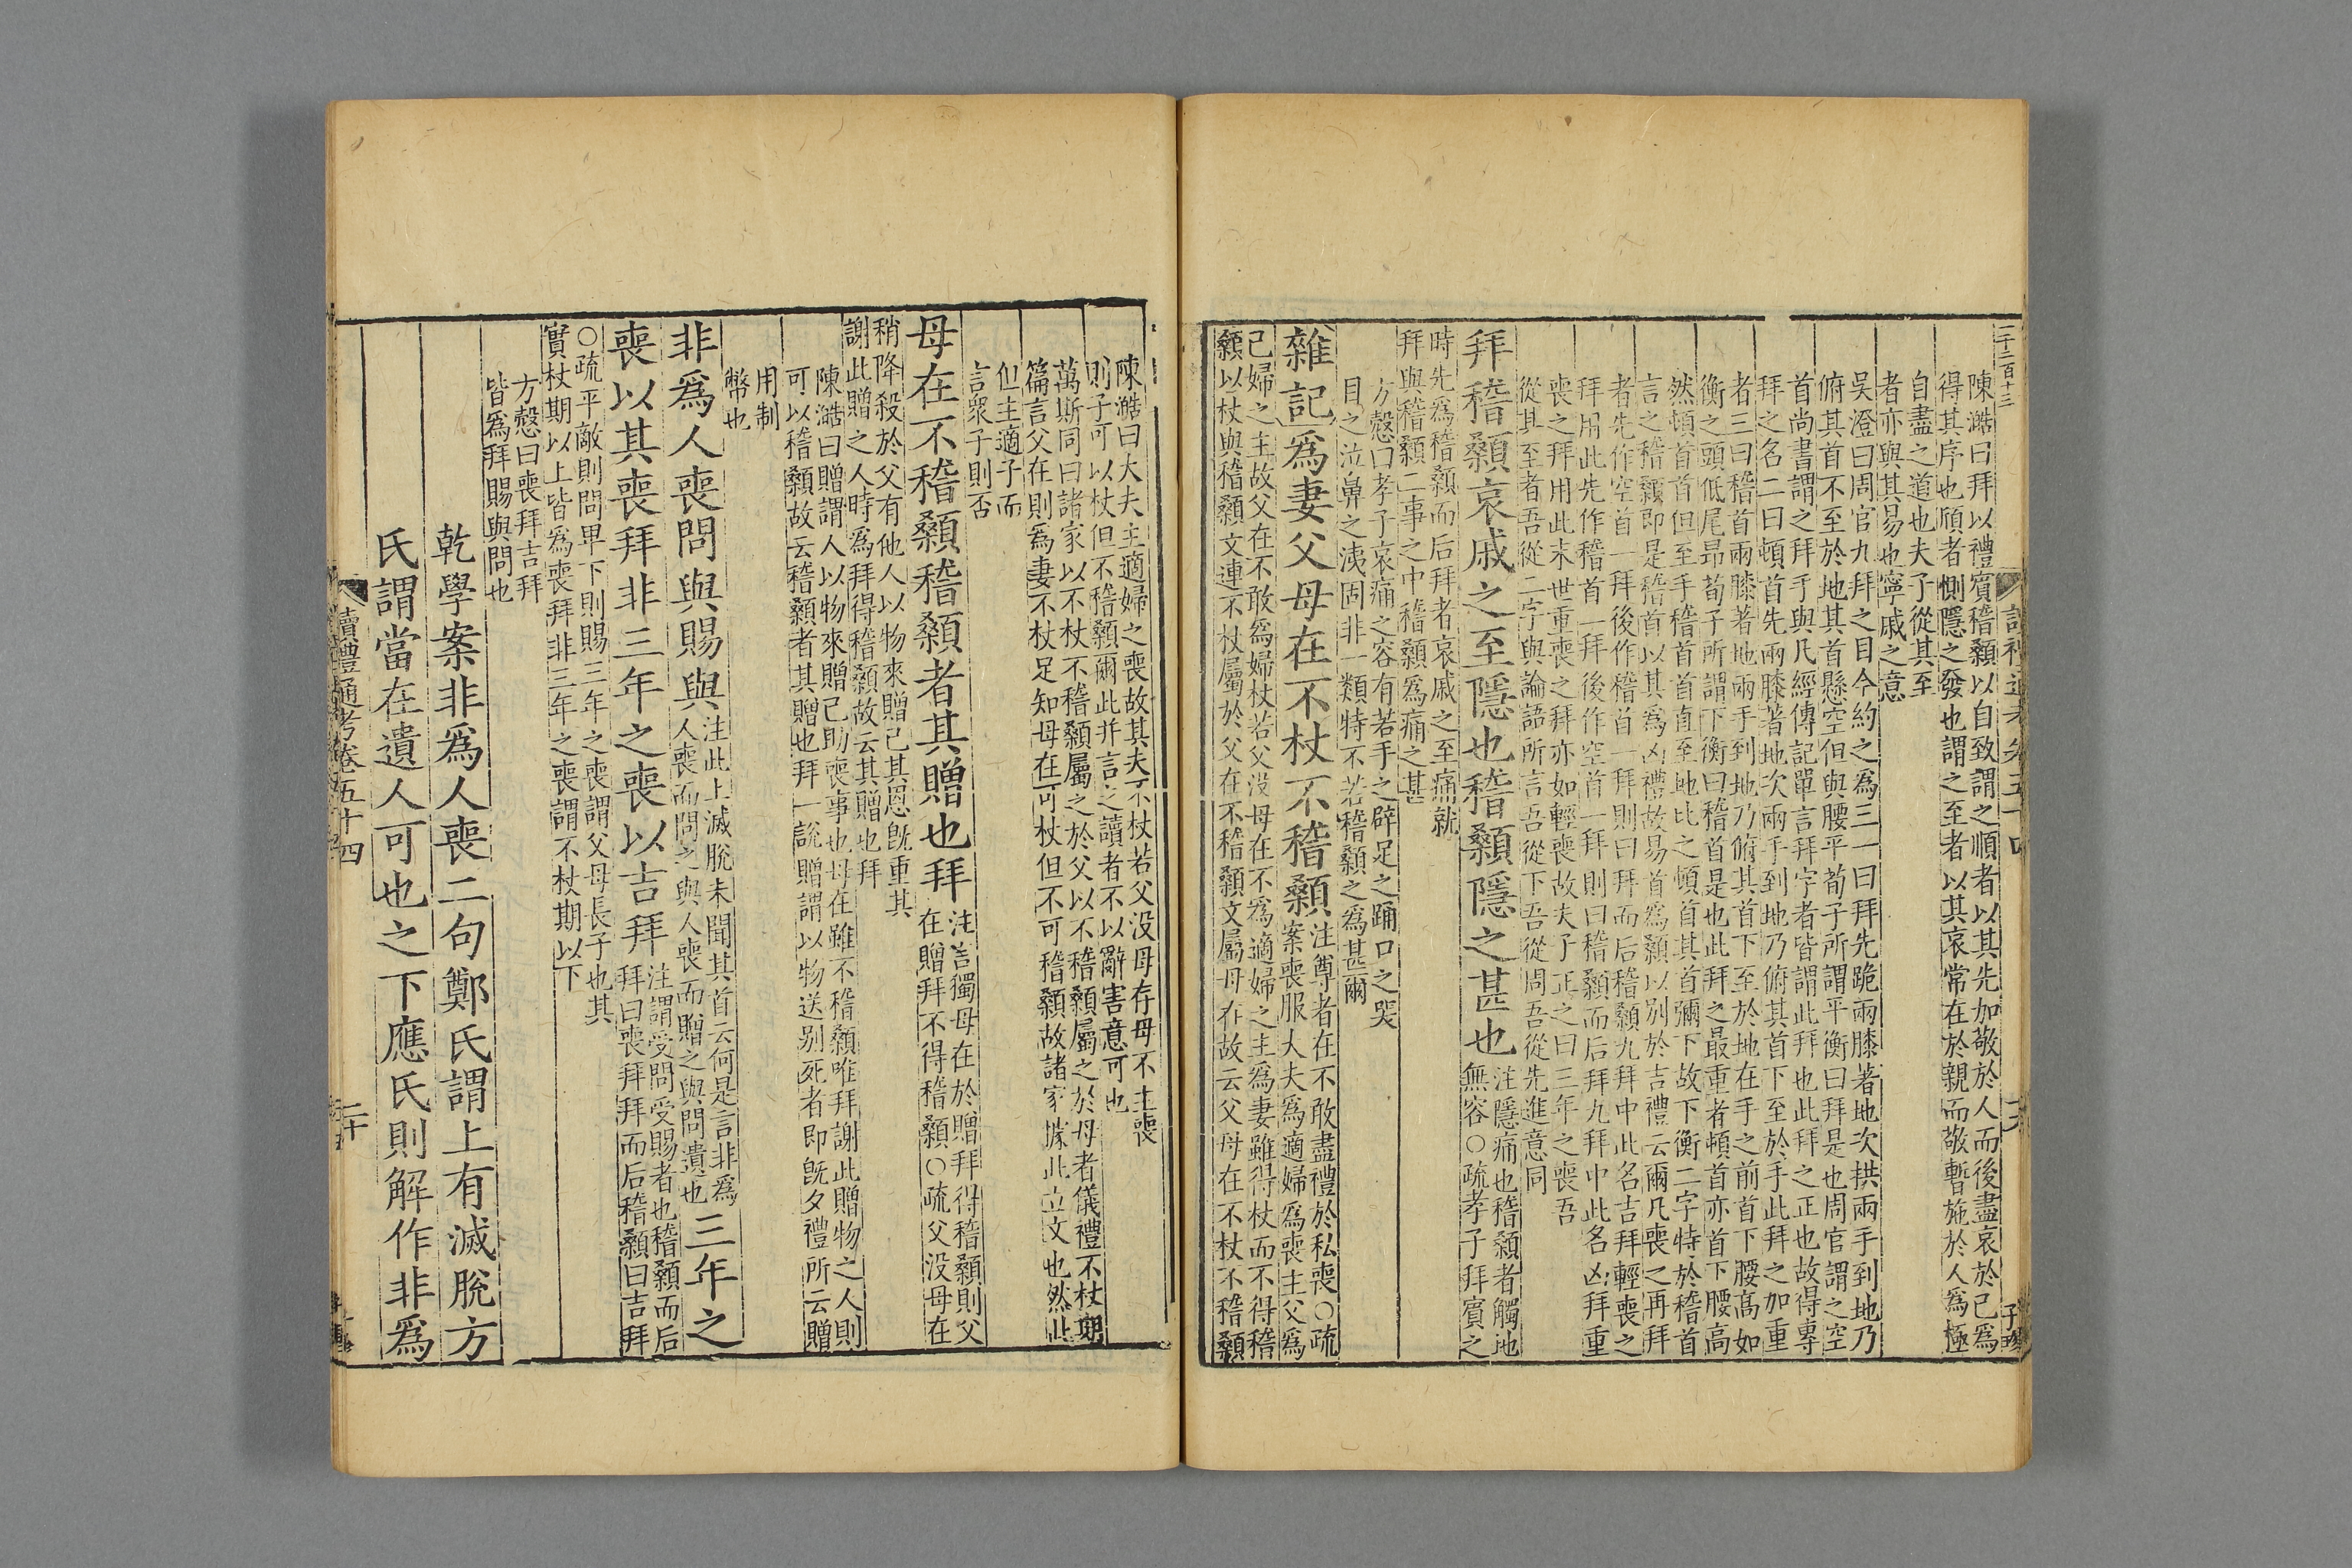 二千二百十三
陳澔曰拜以禮賓稽顙以自致謂之順者以其先加敬於人而後盡哀於己爲
得其序也頎者惻隱之發也謂之至者以其哀常在於親而敬暫施於人爲極
自盡之道也夫子從其至
者亦與其易也寧戚之意
吳澄曰周官九拜之目今約之爲三一曰拜先跪兩膝著地次拱兩手到地乃
俯其首不至於地其首懸空但與腰平荀子所謂平衡曰拜是也周官謂之空
首尚書謂之拜手與凡經傳記單言拜字者皆謂此拜也此拜之正也故得專
拜之名二曰頓首先兩膝著地次兩手到地乃俯其首下至於手此拜之加重
者三曰稽首兩膝著地兩手到地乃俯其首下至於地在手之前首下腰高如
衡之頭低尾昂荀子所謂下衡曰稽首是也此拜之最重者頓首亦首下腰高
然頓首首但至手稽首首直至地比之頓首其首彌下故下衡二字特於稽首
言之稽顙即是稽首以其爲凶禮故易首爲顙以別於吉禮云爾凡喪之再拜
者先作空首一拜後作稽首一拜則曰拜而后稽顙九拜中此名吉拜輕喪之
拜用此先作稽首一拜後作空首一拜則曰稽顙而后拜九拜中此名凶拜重
喪之拜用此末世重喪之拜亦如輕喪故夫子正之曰三年之喪吾
從其至者吾從二字與論語所言吾從下吾從周吾從先進意同
拜稽顙哀戚之至隱也稽顙隱之甚也
注隱痛也稽顙者觸地
無容○疏孝子拜賓之
時先爲稽顙而后拜者哀戚之至痛就
拜與稽顙二事之中稽顙爲痛之甚
方慤曰孝子哀痛之容有若手之辟足之踊口之哭
目之泣鼻之洟固非一類特不若稽顙之爲甚爾
雜記爲妻父母在不杖不稽顙
注尊者在不敢盡禮於私喪○疏
案喪服大夫爲適婦爲喪主父爲
己婦之主故父在不敢爲婦杖若父没母在不爲適婦之主爲妻雖得杖而不得稽
顙以杖與稽顙文連不杖屬於父在不稽顙文屬母在故云父母在不杖不稽顙
陳澔曰大夫主適婦之喪故其夫不杖若父没母存母不主喪
則子可以杖但不稽顙爾此并言之讀者不以辭害意可也
萬斯同曰諸家以不杖不稽顙屬之於父以不稽顙屬之於母者儀禮不杖期
篇言父在則爲妻不杖足知母在可杖但不可稽顙故諸家據此立文也然此
但主適子而
言衆子則否
母在不稽顙稽顙者其贈也拜
注言獨母在於贈拜得稽顙則父
在贈拜不得稽顙○疏父没母在
稍降殺於父有他人以物來贈己其恩旣重其
謝此贈之人時爲拜得稽顙故云其贈也拜
陳澔曰贈謂人以物來贈己助喪事也母在雖不稽顙唯拜謝此贈物之人則
可以稽顙故云稽顙者其贈也拜一說贈謂以物送别死者即旣夕禮所云贈
用制
幣也
非爲人喪問與賜與
注此上滅脫未聞其首云何是言非爲
人喪而問之與人喪而贈之與問遺也
三年之
喪以其喪拜非三年之喪以吉拜
注謂受問受賜者也稽顙而后
拜曰喪拜拜而后稽顙曰吉拜
○疏平敵則問卑下則賜三年之喪謂父母長子也其
實杖期以上皆爲喪拜非三年之喪謂不杖期以下
方慤曰喪拜吉拜
皆爲拜賜與問也
乾學案非爲人喪二句鄭氏謂上有滅脫方
氏謂當在遺人可也之下應氏則解作非爲
讀禮通考卷五十四
二十